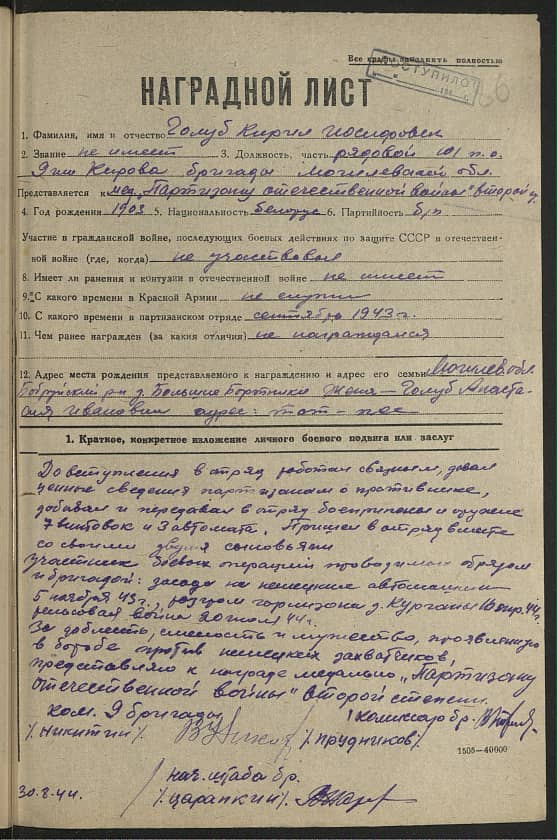 Все графы заполнить полностью
ПОСТУПИЛО
НАГРАДНОЙ ЛИСТ
1. Фамилия, имя и отчество Голуб Кирил Иосифович
2. Звание не имеет 3. Должность, часть рядовой 101 п.о.
9 им Кирова бригады Могилевской обл.
Представляется к мед. "Партизану отечественной войны" второй
4. Год рождения 1903 5. Национальность белорус 6. Партийность б/п
Участие в гражданской войне, последующих боевых действиях по защите СССР и отечествен-
ной войне (где, когда) не участвовал
8. Имеет ли ранения и контузии в отечественной войне не имеет
9. С какого времени в Красной Армии не служил
10. С какого времени в партизанском отряде сентябрь 1943 г.
11. Чем ранее награжден (за какия отличия) не награждался
12. Адрес места рождения представляемого к награждению и адрес его семьи Могилев обл.
Бобруйский р-н д. Большие Бортники Жена - Голуб Анаста-
сия Ивановна адрес: тот-же
1. Краткое, конкретное изложение личного боевого подвига или заслуг
До вступления в отряд работал связным, давал
ценные сведения партизанам о противнике,
добывал и передавал в отряд боеприпасы и оружие
7 винтовок и 3 автомата. Пришел в отряд вместе
со своими двумя сыновьями
Участник боевых операций проводимых отрядом
и бригадой: засада на немецкие автомашины
5 ноября 43 г., разгром гарнизона д. Курганы 44 г.
рельсовая война 44 г.
За доблесть, смелость и мужество, проявленную
в борьбе против немецких захватчиков,
представляю к награде медалью "Партизану
отечественной войны" второй степени.
ком. 9 бригады комиссар бр.
/Никитин/ /Прудников/
1505-40000
нач. штаба бр.
30.8.44. /Царапкин/